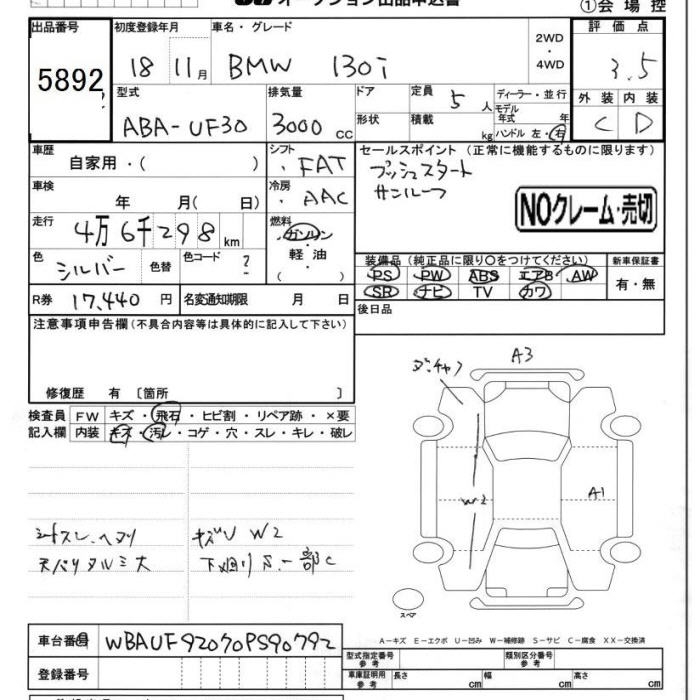 ①会場控
出品番号 初度登録年月 車名・グレード 2WD・4WD 評価点
5892 18 11月 BMW 130i 3.5
型式 排気量 ドア 定員 5人 ディーラー・並行 外装 内装
ABA-UF30 3000cc 形状 積載 kg モデル年式 年 ハンドル 左・右 C D
車歴 シフト セールスポイント (正常に機能するものに限ります)
自家用・( ) ・FAT プッシュスタート
車検 冷房 サンルーフ
年 月( 日) ・AAC
走行 燃料 NOクレーム・売切
4万6千298km ・ガソリン
色 色替 色コード ? 軽・油
シルバー ・( )
装備品 (純正品に限り〇をつけてください) 新車保証書
PS PW ABS エアB AW 有・無
SR ナビ TV カワ
R券 17,440円 名変通知期限 月 日
後日品
注意事項申告欄(不具合内容等は具体的に記入して下さい)
修復歴 有 〔箇所 〕
A3
検査員 FW キズ・飛石・ヒビ割・リペア跡・×要
記入欄 内装 キズ・汚レ・コゲ・穴・スレ・キレ・破レ
W2 A1
シートスレ、ヘタリ キズU W2
天バリタルミ大 下廻りS、一部C
スペア
A-キズ E-エクボ U-凹み W-補修跡 S-サビ C-腐食 XX-交換済
車台番号 WBAUF92070PS90792
型式指定番号 参考 類別区分番号 参考
登録番号 車庫証明用 参考 長さ cm 幅 cm 高さ cm